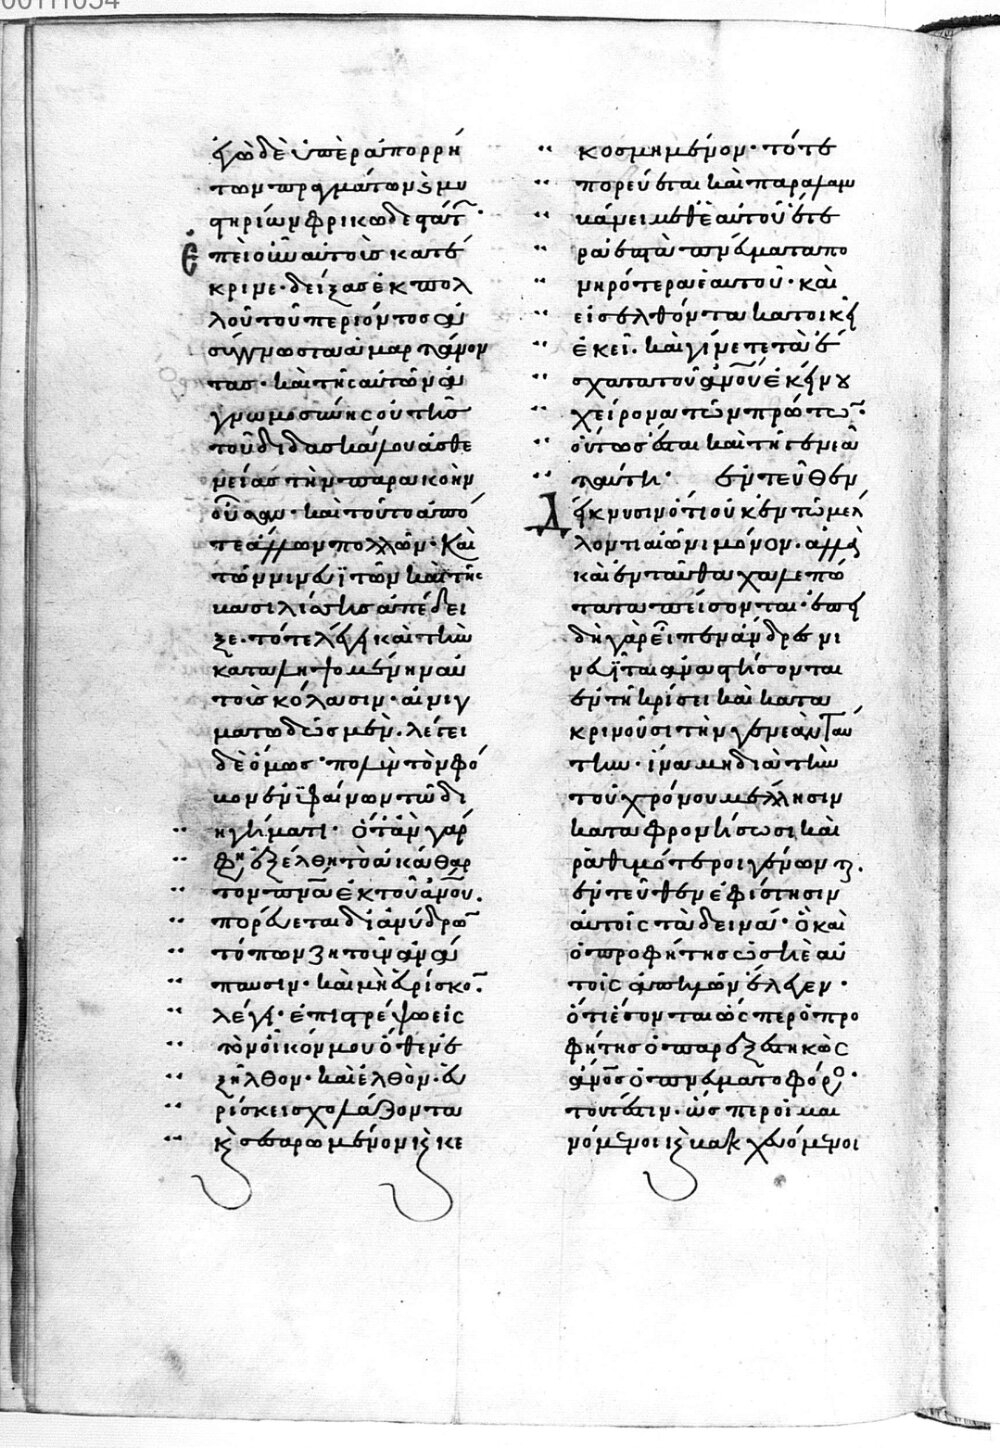 ἐγὼ δὲ ὑπὲρ ἀπορρή
των πραγμάτων ϗ μυ
στηρίων φρικωδεστάτ
Ἐπεὶ οὖν αὐτοὺς κατέ
κρινε· δείξας ἐκ πολ
λοῦ τοῦ περιόντος ἀ
σύγγνωστα ἁμαρτάνον
τας· καὶ τῆς αὐτῶν ἀ
γνωμοσύνης οὐ τῆς
τοῦ διδασκάλου ἀσθε
νείας τὴν παρακοὴν
οὖσαν· καὶ τοῦτο ἀπό
τε ἄλλων πολλῶν· καὶ
τῶν νινευϊτῶν καὶ τῆς
βασιλίσσης ἀπέδει
ξε· τότε λέγει καὶ τὴν
καταληψομένην αὐ
τοὺς κόλασιν· αἰνιγ
ματωδῶς μὲν. λέγει
δὲ ὅμως· πολὺν τὸν φό
βον ἐνυφαίνων τῶ δι
ηγήματι· ὅταν γάρ
φη ἐξέλθη τὸ ἀκάθαρ
τον πνᾶ ἐκ τοῦ ἀνοῦ.
πορεύεται δι ἀνύδρω
τόπων ζητοῦν ἀνά
παυσιν· καὶ μὴ εὑρίσκο
λέγει· ἐπιστρέψω εἰς
τὸν οἶκόν μου ὅθεν ἐ
ξῆλθον· καὶ ἐλθὸν εὑ
ρίσκει σχολάζοντα
ϗ σεσαρωμένον ϗ κε
κοσμημένον· τότε
πορεύεται καὶ παραλαμ
βάνει μεθ ἑαυτοῦ ἕτε
ρα ἑπτὰ πνεύματα πο
νηρότερα ἑαυτοῦ· καὶ
εἰσελθόντα κατοικεῖ
ἐκεῖ. καὶ γίνεται τὰ ἔ
σχατα τοῦ ἀνοῦ ἐκείνου
χείρονα τῶν πρώτω
οὕτως ἔσται καὶ τῆ γενεᾶ
ταύτη· ἐντεῦθεν
Δείκνυσιν ὅτι οὐκ ἐν τῶ μέλ
λοντι αἰῶνι μόνον. ἀλλὰ
καὶ ἐνταῦθα χαλεπώ
τατα πείσονται· ἐπει
δὴ γὰρ εἶπεν ἄνδρες νι
νευῗται ἀναστήσονται
ἐν τῆ κρίσει καὶ κατα
κρινοῦσι τὴν γενεὰν ταύ
την· ἵνα μὴ διὰ τὴν
τοῦ χρόνου μέλλησιν
καταφρονήσωσι καὶ
ῥαθυμότεροι γένωντ.
ἐντεῦθεν ἐφίστησιν
αὐτοῖς τὰ δεινά· ὃ καὶ
ὁ προφήτης ὡσηὲ αὐ
τοῖς ἀπειλῶν ἔλεγεν·
ὅτι ἔσονται ὥσπερ ὁ προ
φήτης ὁ παρεξεστηκὼς
ἀνος ὁ πνευματοφόρο·
τουτέστιν. ὥσπερ οἱ μαι
νόμενοι ϗ βακχευόμενοι